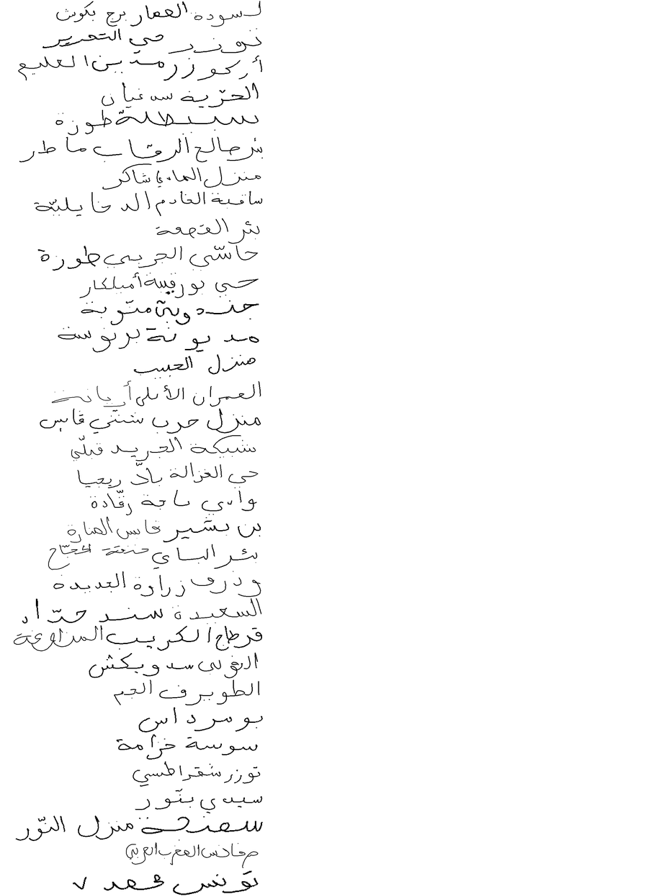 لسودة العمار برج بكوش
توزر حي التحرير
أركو زرمدين العليم
الحرّية سد غيان
سبيطلة طوزة
بئر صالح الرقاب ماطر
منزل الهادي شاكر
ساقية الخادم الدخايليّة
بئر القصعة
حاسّي الجربي طوزة
حي بورقيبة أميلكار
جندوبة منّوبة
مديونة برنوسة
منزل الحبيب
العمران الأعلى أريانة
منزل حرب شنّني قابس
شبيكة الجريد قبلّي
حي الغزالة بادّريجيا
وادي باجة رقّادة
بن بشير قابس المنارة
بئر الباي
وذرف زرارة الجديدة
السعيدة سند حدّاد
قرطاج الكريب المزاوغة
الغولي سد ويكش
الطويرف الجم
بومرداس
سوسة خزامة
توزر شقراطسي
سيدي بنّور
سمنجة منزل النّور
صفاقس المغرب العربي
تونس محمد ٧